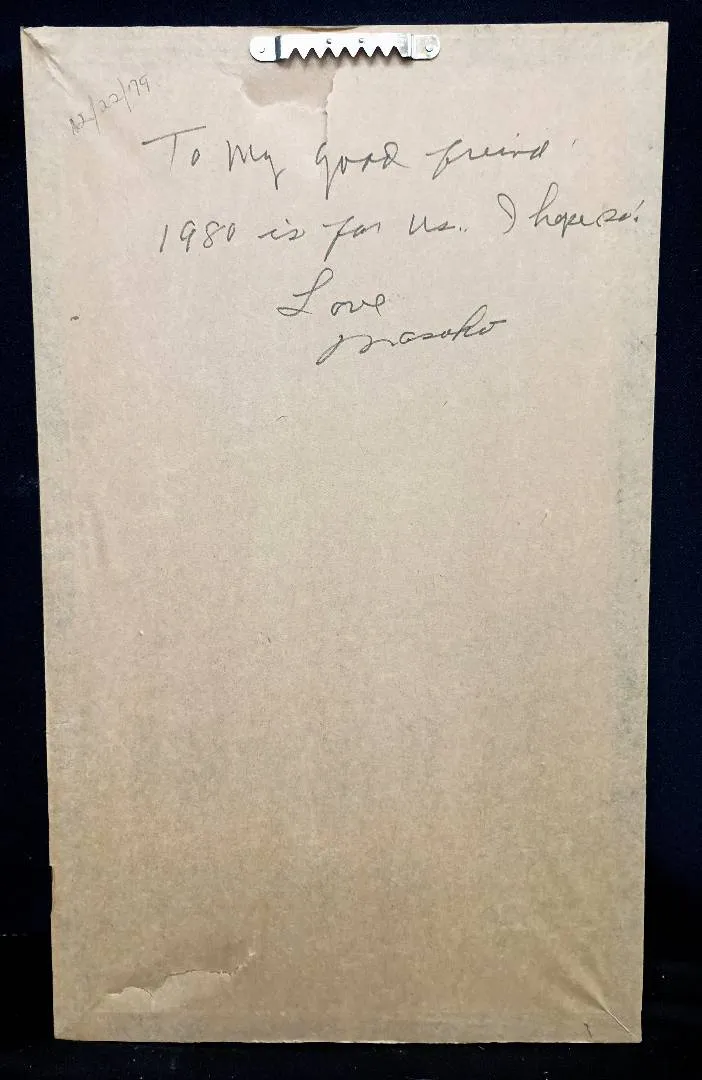 12/22/79
To My good freind!
1980 is for Us.. I hope so!
Love
Masako